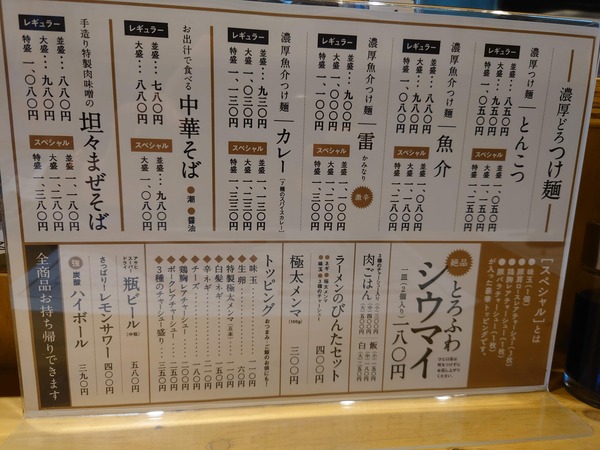 濃厚どろつけ麺
濃厚つけ麺 とんこつ
レギュラー
並盛…八五〇円
大盛…九五〇円
特盛 一、〇五〇円
スペシャル
並盛 一、〇五〇円
大盛 一、一五〇円
特盛 一、二五〇円
濃厚魚介つけ麺 魚介
レギュラー
並盛…八八〇円
大盛…九八〇円
特盛 一、〇八〇円
スペシャル
並盛 一、〇八〇円
大盛 一、一八〇円
特盛 一、二八〇円
濃厚魚介つけ麺 雷 かみなり 激辛
レギュラー
並盛…九〇〇円
大盛 一、〇〇〇円
特盛 一、一〇〇円
スペシャル
並盛 一、一〇〇円
大盛 一、二〇〇円
特盛 一、三〇〇円
濃厚魚介つけ麺 カレー（7種のスパイスカレー）
レギュラー
並盛…九三〇円
大盛 一、〇三〇円
特盛 一、一三〇円
スペシャル
並盛 一、一三〇円
大盛 一、二三〇円
特盛 一、三三〇円
お出汁で食べる 中華そば ●潮 ●醤油
レギュラー
並盛…七八〇円
大盛…八八〇円
スペシャル
並盛…九八〇円
大盛 一、〇八〇円
手造り特製肉味噌の 坦々まぜそば
レギュラー
並盛…八八〇円
大盛…九八〇円
特盛 一、〇八〇円
スペシャル
並盛 一、一八〇円
大盛 一、二八〇円
特盛 一、三八〇円
【スペシャル】とは
●味玉（1個）
が入った豪華トッピングです。
絶品
とろふわ
シウマイ
一皿（2個入り）一八〇円
肉ごはん
白飯
ラーメンのびんたセット 四〇〇円
●ネギ ●極太メンマ
●味玉 ●3種のチャーシュー
極太メンマ（100g） 三〇〇円
トッピング おつまみ・ご飯のお供にも！
◆味玉 一〇〇円
◆生卵 六〇円
◆特製極太メンマ（五本） 一〇〇円
◆白髪ネギ 一〇〇円
◆辛ネギ
◆チーズ
◆鶏胸レアチャーシュー
◆ポークレアチャーシュー
◆3種のチャーシュー盛り 三五〇円
アサヒスーパードライ 瓶ビール（中瓶） 五八〇円
さっぱりーレモンサワー 四〇〇円
強 炭酸 ハイボール 三九〇円
全商品お持ち帰りできます